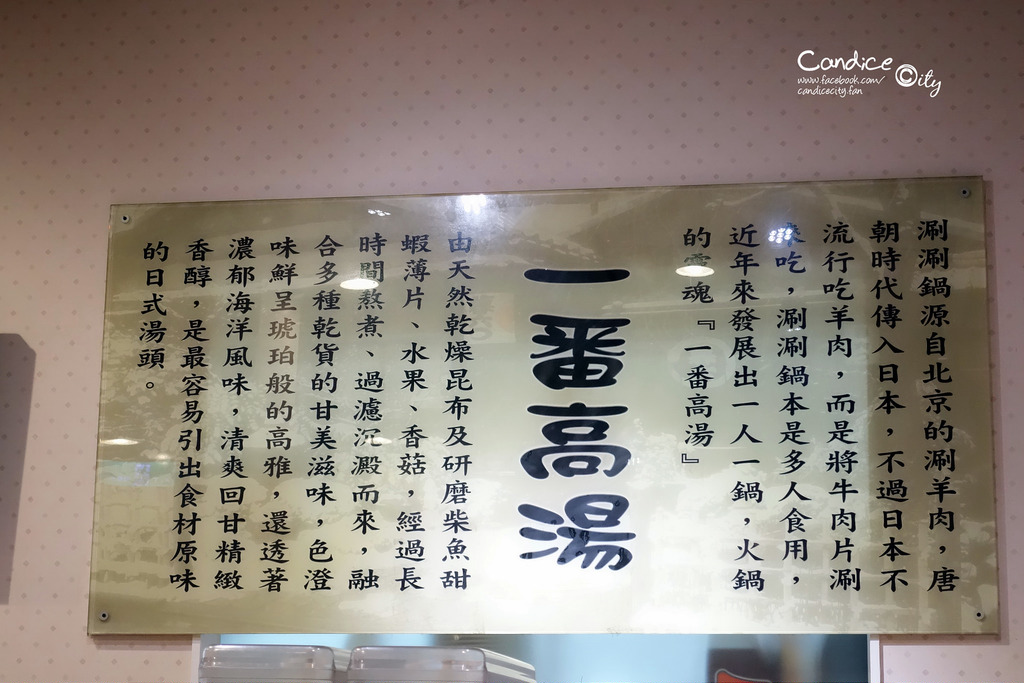 涮涮鍋源自北京的涮羊肉，唐
朝時代傳入日本，不過日本不
流行吃羊肉，而是將牛肉片涮
來吃，涮鍋本是多人食用，
近年來發展出一人一鍋，火鍋
的靈魂『一番高湯』
一番高湯
由天然乾燥昆布及研磨柴魚甜
蝦薄片、水果、香菇，經過長
時間熬煮、過濾沉澱而來，融
合多種乾貨的甘美滋味，色澄
味鮮呈琥珀般的高雅，還透著
濃郁海洋風味，清爽回甘精緻
香醇，是最容易引出食材原味
的日式湯頭。
Candice City
www.facebook.com/
candicecity.fan